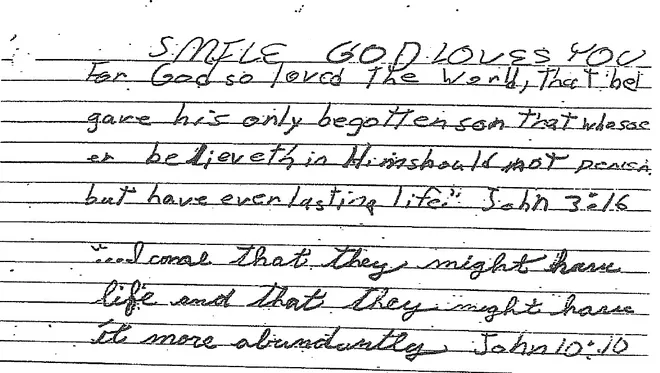 SMILE GOD LOVES YOU
For God so loved the World, that he
gave his only begotten son that whose
er believeth in Him should not perish
but have everlasting life." John 3:16
"...I come that they might have
life and that they might have
it more abundantly. John 10:10